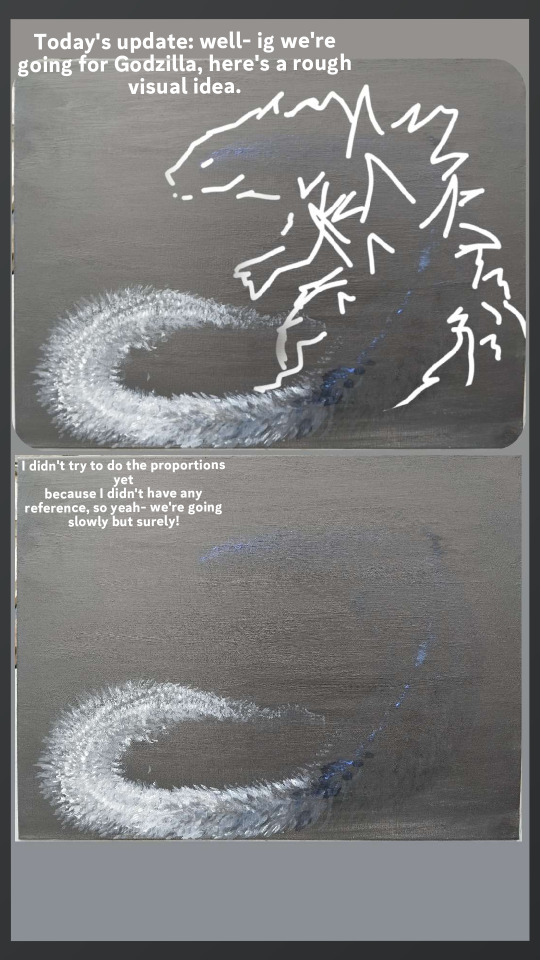 Today's update: well- ig we're
going for Godzilla, here's a rough
visual idea.
I didn't try to do the proportions
yet
because I didn't have any
reference, so yeah- we're going
slowly but surely!